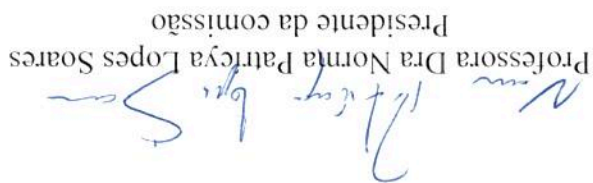 Professora Dra Norma Patricya Lopes Soares
Presidente da comissão